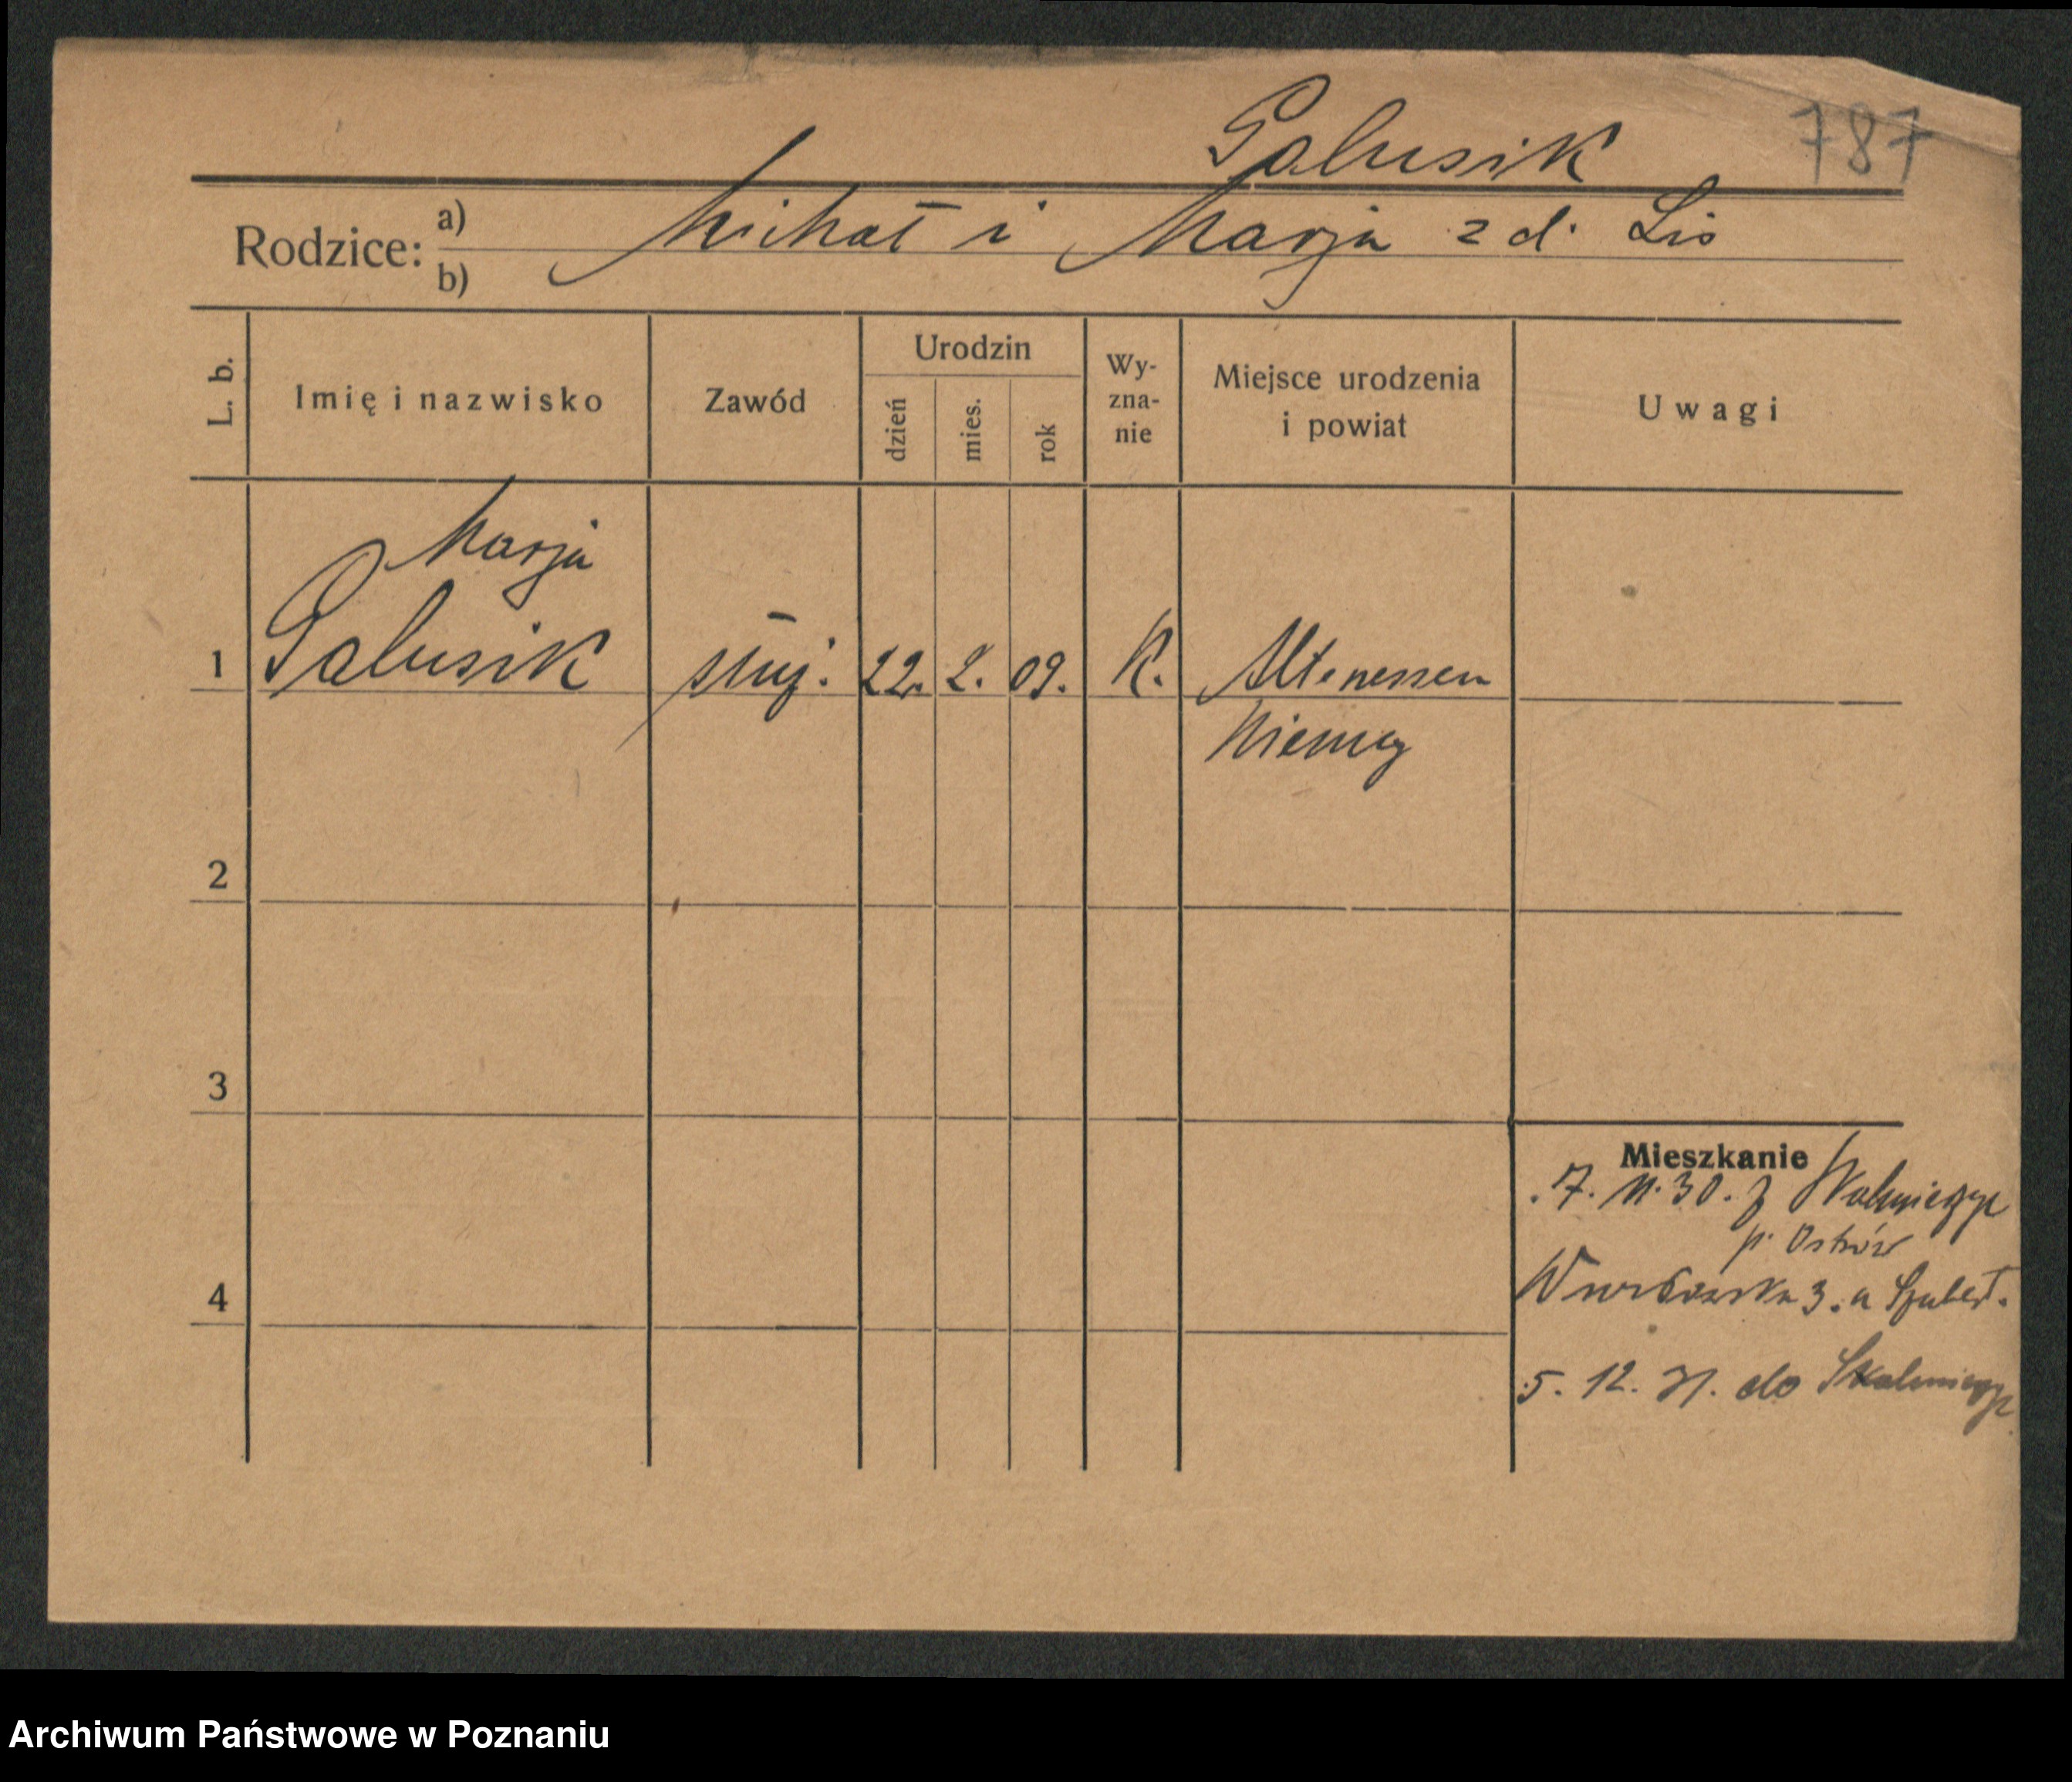 Galusik 787
Rodzice: a) Michał i Marja z d. Lis
b)
L. b. Imię i nazwisko Zawód Urodzin dzień mies. rok Wy-zna-nie Miejsce urodzenia i powiat Uwagi
Marja
1 Galusik służ. 22. 2. 09. K. Altenessen
Niemcy
2
3
Mieszkanie
17. 11. 30. z Skalmierzyc
p. Ostrów
4 3. u
5. 12. 31. do Skalmierzyc
Archiwum Państwowe w Poznaniu